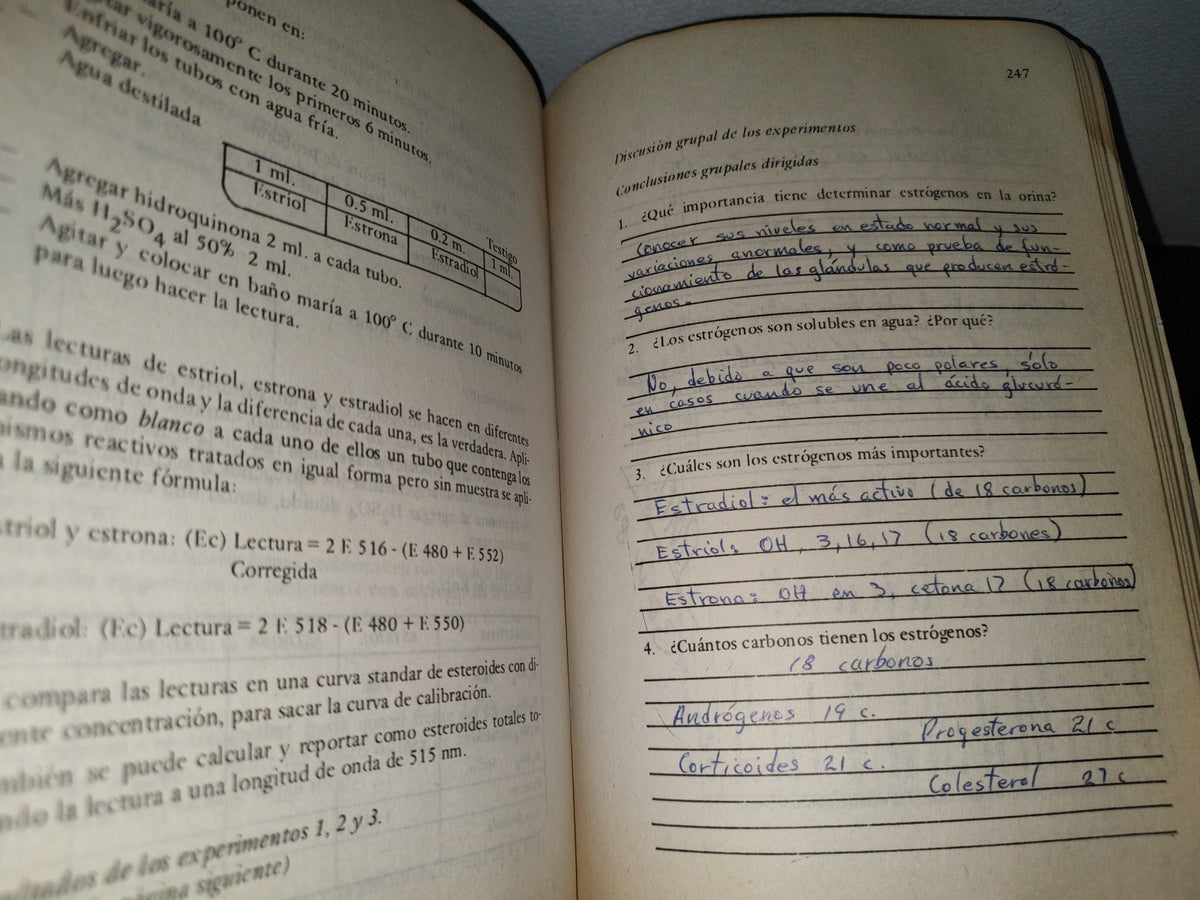 ponen en:
maría a 100° C durante 20 minutos.
vigorosamente los primeros 6 minutos.
Enfriar los tubos con agua fría.
Agregar.
Agua destilada
1 ml. 0.5 ml. 0.2 m. Testigo
Estriol Estrona Estradiol 1 ml.
Agregar hidroquinona 2 ml. a cada tubo.
Más H₂SO₄ al 50% 2 ml.
Agitar y colocar en baño maría a 100° C durante 10 minutos
para luego hacer la lectura.
Las lecturas de estriol, estrona y estradiol se hacen en diferentes
longitudes de onda y la diferencia de cada una, es la verdadera. Apli-
ando como blanco a cada uno de ellos un tubo que contenga los
mismos reactivos tratados en igual forma pero sin muestra se apli-
a la siguiente fórmula:
striol y estrona: (Ec) Lectura = 2 E 516 - (E 480 + E 552)
Corregida
tradiol: (Ec) Lectura = 2 E 518 - (E 480 + E 550)
compara las lecturas en una curva standar de esteroides con di-
ente concentración, para sacar la curva de calibración.
mbién se puede calcular y reportar como esteroides totales to-
ndo la lectura a una longitud de onda de 515 nm.
ultados de los experimentos 1, 2 y 3.
página siguiente)
247
Discusión grupal de los experimentos
Conclusiones grupales dirigidas
1. ¿Qué importancia tiene determinar estrógenos en la orina?
Conocer sus niveles en estado normal y sus
variaciones anormales, y como prueba de fun-
cionamiento de las glándulas que producen estró-
genos.
2. ¿Los estrógenos son solubles en agua? ¿Por qué?
No, debido a que son poco polares, sólo
en casos cuando se une al ácido glucuró-
nico
3. ¿Cuáles son los estrógenos más importantes?
Estradiol: el más activo (de 18 carbonos)
Estriol: OH, 3,16,17 (18 carbones)
Estrona: OH en 3, cetona 17 (18 carbonos)
4. ¿Cuántos carbonos tienen los estrógenos?
18 carbonos
Andrógenos 19 c.
Progesterona 21 c
Corticoides 21 c.
Colesterol 27 c